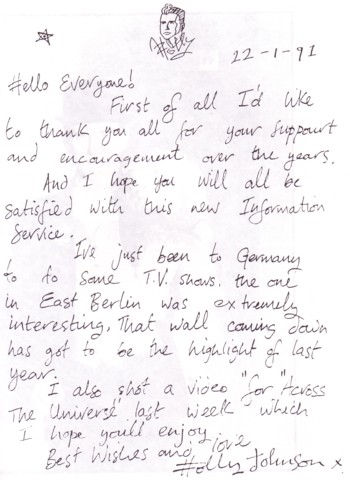 Holly
22-1-91
Hello Everyone!
First of all I'd like
to thank you all for your suppourt
and encouragement over the years.
And I hope you will all be
satisfied with this new Information
Service.
I've just been to Germany
to do some T.V. shows. the one
in East Berlin was extremely
interesting. That wall coming down
has got to be the highlight of last
year.
I also shot a video "for "Across
The Universe" last week which
I hope you'll enjoy
Best Wishes and love
Holly Johnson x